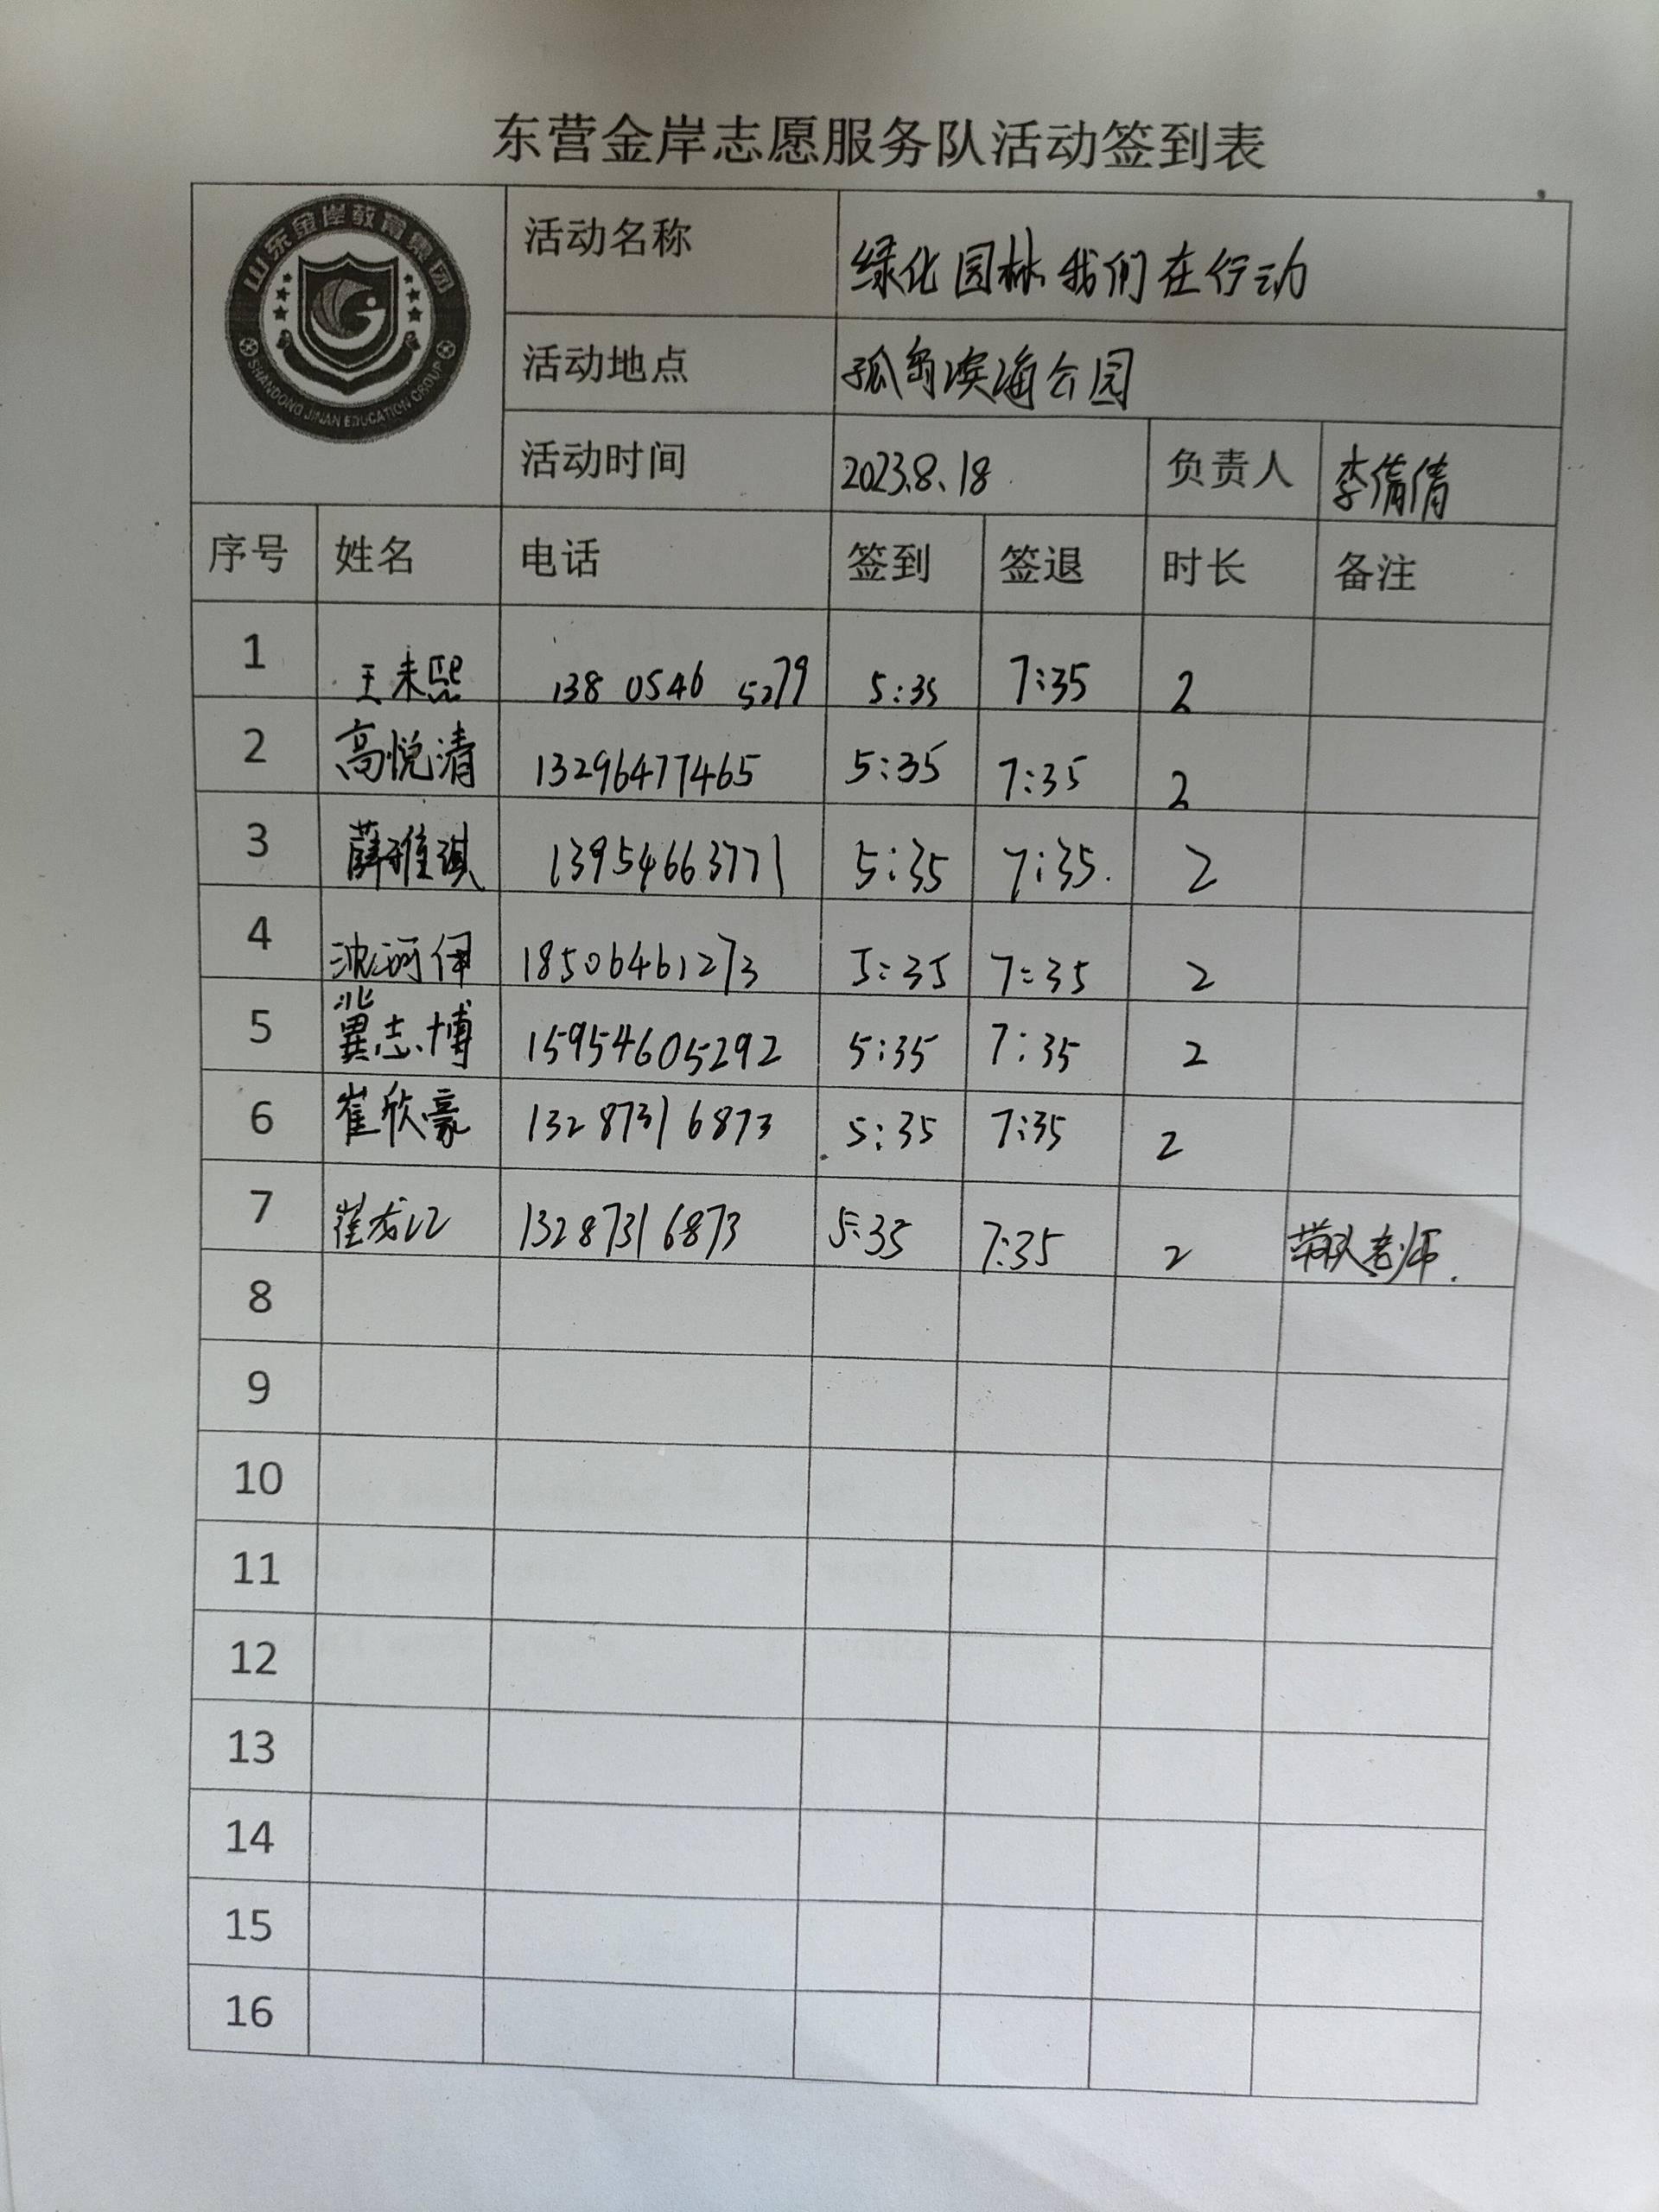 东营金岸志愿服务队活动签到表
山东金岸教育集团
SHANDONG JINAN EDUCATION GROUP
活动名称 绿化园林我们在行动
活动地点 孤岛滨海公园
活动时间 2023.8.18 负责人 李倩倩
序号 姓名 电话 签到 签退 时长 备注
1 王未熙 138 0546 5279 5:35 7:35 2
2 高悦清 13296477465 5:35 7:35 2
3 薛雅琪 13954663771 5:35 7:35. 2
4 沈河伊 18506461273 5:35 7:35 2
5 冀志博 15954605292 5:35 7:35 2
6 崔欣豪 13287316873 5:35 7:35 2
7 崔 13287316873 5:35 7:35 2 带队老师.
8
9
10
11
12
13
14
15
16